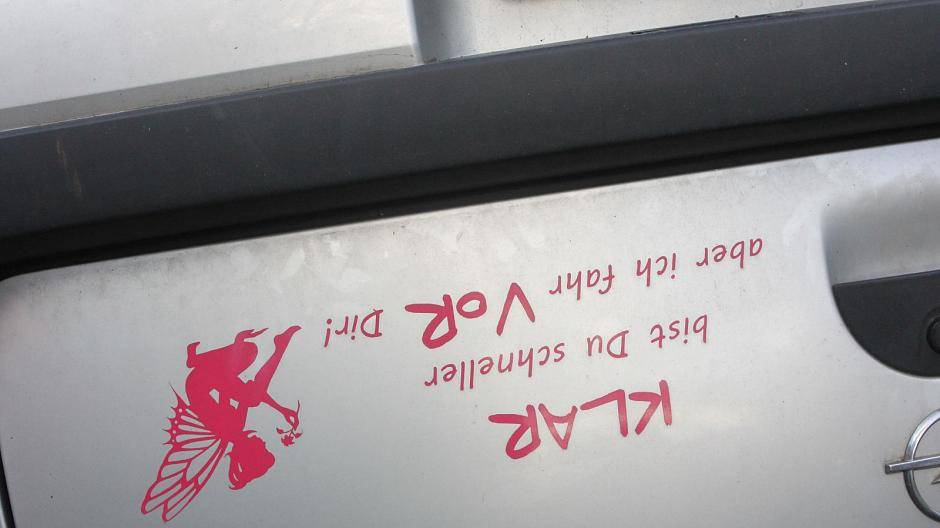 KLAR
bist Du schneller
aber ich fahr VoR Dir!